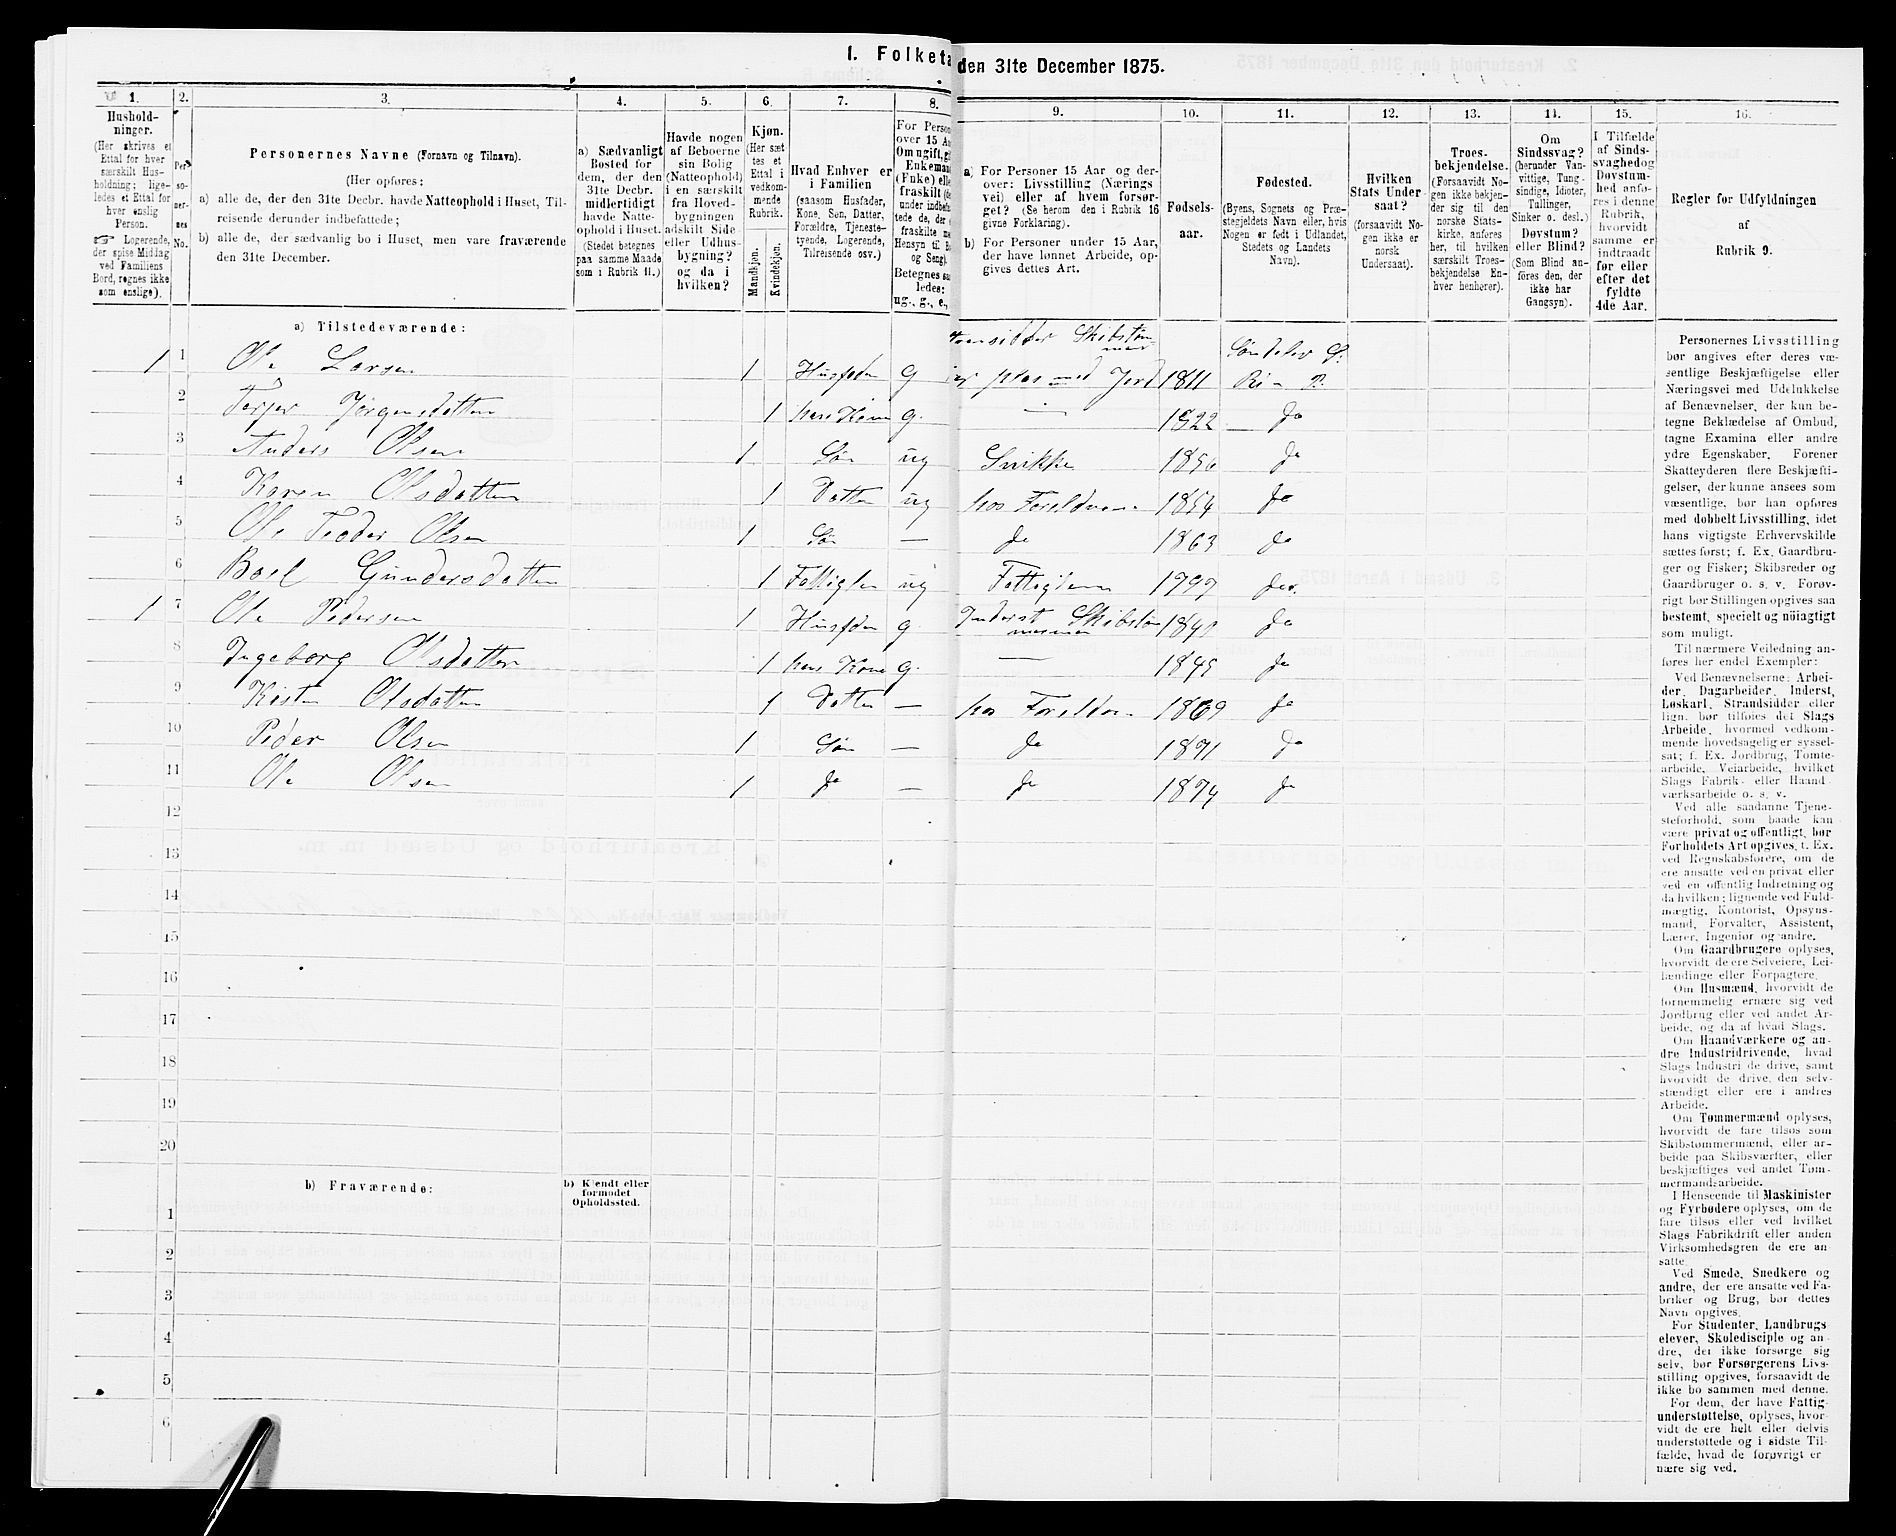 I. Folketa den 31te December 1875.
1.
Hushold-
ninger.
(Her skrives et
Ettal for hver
særskilt Hus-
holdning; lige-
ledes et Ettal for
hver enslig
Person.
☞ Logerende,
der spise Middag
ved Familiens
Bord, regnes ikke
som enslige).
2.
Per-
so-
ner-
nes
No.
3.
Personernes Navne (Fornavn og Tilnavn).
(Her opføres:
a) alle de, der den 31te Decbr. havde Natteophold i Huset, Til-
reisende derunder indbefattede;
b) alle de, der sædvanlig bo i Huset, men vare fraværende
den 31te December.
4.
a) Sædvanligt
Bosted for
dem, der den
31te Decbr.
midlertidigt
havde Natte-
ophold i Huset.
(Stedet betegnes
paa samme Maade
som i Rubrik 11.)
5.
Havde nogen
af Beboerne
sin Bolig
(Natteophold)
i en særskilt
fra Hoved-
bygningen
adskilt Side-
eller Udhus-
bygning?
og da i
hvilken?
6.
Kjøn.
(Her sæt-
tes et
Ettal i
vedkom-
mende
Rubrik.
Mandkjøn.
Kvindekjøn.
7.
Hvad Enhver er
i Familien
(saasom Husfader,
Kone, Søn, Datter,
Forældre, Tjeneste-
tyende, Logerende,
Tilreisende osv.)
8.
For Person
over 15 Aa
Om ugift, g
Enkemand
(Enke) elle
fraskilt (de
under indbefa
tede de, der e
fraskilte m
Hensyn til Bo
og Seng).
Betegnes saa
ledes:
ug., g., e.,
9.
a) For Personer 15 Aar og der-
over: Livsstilling (Nærings
vei) eller af hvem forsør-
get? (Se herom den i Rubrik 16
givne Forklaring).
b) For Personer under 15 Aar,
der have lønnet Arbeide, op-
gives dettes Art.
10.
Fødsels-
aar.
11.
Fødested.
(Byens, Sognets og Præ-
stegjeldets Navn eller, hvis
Nogen er født i Udlandet,
Stedets og Landets
Navn).
12.
Hvilken
Stats Under-
saat?
(forsaavidt No-
gen ikke er
norsk
Undersaat).
13.
Troes-
bekjendelse.
(Forsaavidt No-
gen ikke bekjen-
der sig til den
norske Stats-
kirke, anføres
her, til hvilken
særskilt Troes-
bekjendelse En-
hver henhører).
14.
Om
Sindssvag?
(herunder Van-
vittige, Tung-
sindige, Idioter,
Tullinger,
Sinker o. desl.)
Døvstum?
eller Blind?
(Som Blind an-
føres den, der
ikke har
Gangsyn).
15.
I Tilfælde
af Sinds-
svaghed og
Døvstum-
hed anfø-
res i denne
Rubrik,
hvorvidt
samme er
indtraadt
før eller
efter det
fyldte
4de Aar.
16.
Regler for Udfyldningen
af
Rubrik 9.
a) Tilstedeværende:
1 1 Ole Larsen 1 Husfader g Strandsidder Skibstøm-
mer plas med Jord 1811 Søndelev S.
Risør P.
2 Terjer Jørgensdatter 1 hans Kone g. — 1822 do
3 Anders Olsen 1 Søn ug Snikker 1856 do
4 Karen Olsdatter 1 Datter ug hos Foreldrene 1854 do
5 Ole Teoder Olsen 1 Søn — do 1863 do
6 Boel Gundersdatter 1 Fattiglem ug Fattiglem 1797 do
1 7 Ole Pedersen 1 Husfader g Inderst Skibstøm-
mermand 1840 do
8 Ingeborg Olsdatter 1 hans Kone g. — 1845 do
9 Kisten Olsdatter 1 Datter — hos Foreldrene 1869 do
10 Peder Olsen 1 Søn — do 1871 do
11 Ole Olsen 1 do — do 1874 do
12
13
14
15
16
17
18
19
20
b) Fraværende:
b) Kjendt eller
formodet
Opholdssted.
1
2
3
4
5
6
Personernes Livsstilling
bør angives efter deres væ-
sentlige Beskjæftigelse eller
Næringsvei med Udelukkelse
af Benævnelser, der kun be-
tegne Beklædelse af Ombud,
tagne Examina eller andre
ydre Egenskaber. Forener
Skatteyderen flere Beskjæfti-
gelser, der kunne ansees som
væsentlige, bør han opføres
med dobbelt Livsstilling, idet
hans vigtigste Erhvervskilde
sættes først; f. Ex. Gaardbru-
ger og Fisker; Skibsreder og
Gaardbruger o. s. v. Forøv-
rigt bør Stillingen opgives saa
bestemt, specielt og nöiagtigt
som muligt.
Til nærmere Veiledning an-
føres her endel Exempler:
Ved Benævnelserne: Arbei-
der, Dagarbeider, Inderst,
Løskarl, Strandsidder eller
lign. bør tilføies det Slags
Arbeide, hvormed vedkom-
mende hovedsagelig er syssel-
sat; f. Ex. Jordbrug, Tomte-
arbeide, Veiarbeide, hvilket
Slags Fabrik- eller Haand-
værksarbeide o. s. v.
Ved alle saadanne Tjene-
steforhold, som baade kan
være privat og offentligt, bør
Forholdets Art opgives, f. Ex.
ved Regnskabsførere, om de
ere ansatte ved en privat eller
ved en offentlig Indretning og
da hvilken; lignende ved Fuld-
mægtig, Kontorist, Opsyns-
mand, Forvalter, Assistent,
Lærer, Ingeniør og andre.
Om Gaardbrugere oplyses,
hvorvidt de ere Selveiere, Lei-
lændinge eller Forpagtere.
Om Husmænd, hvorvidt de
fornemmelig ernære sig ved
Jordbrug eller ved andet Ar-
beide, og da af hvad Slags.
Om Haandværkere og an-
dre Industridrivende, hvad
Slags Industri de drive, samt
hvorvidt de drive den selv-
stændigt eller ere i andres
Arbeide.
Om Tømmermænd oplyses,
hvorvidt de fare tilsøs som
Skibstømmermænd, eller ar-
beide paa Skibsværfter, eller
beskjæftiges ved andet Tøm-
mermandsarbeide.
I Henseende til Maskinister
og Fyrbødere oplyses, om de
fare tilsøs eller ved hvilket
Slags Fabrikdrift eller anden
Virksomhedsgren de ere an-
satte.
Ved Smede, Snedkere og
andre, der ere ansatte ved Fa-
briker og Brug, bør dettes
Navn opgives.
For Studenter, Landbrugs-
elever, Skoledisciple og an-
dre, der ikke forsørge sig
selv, bør Forsørgerens Livs-
stilling opgives, forsaavidt de
ikke bo sammen med denne.
For dem, der have Fattig-
understøttelse, oplyses, hvor-
vidt de ere helt eller delvis
understøttede og i sidste Til-
fælde, hvad de forøvrigt er-
nære sig ved.